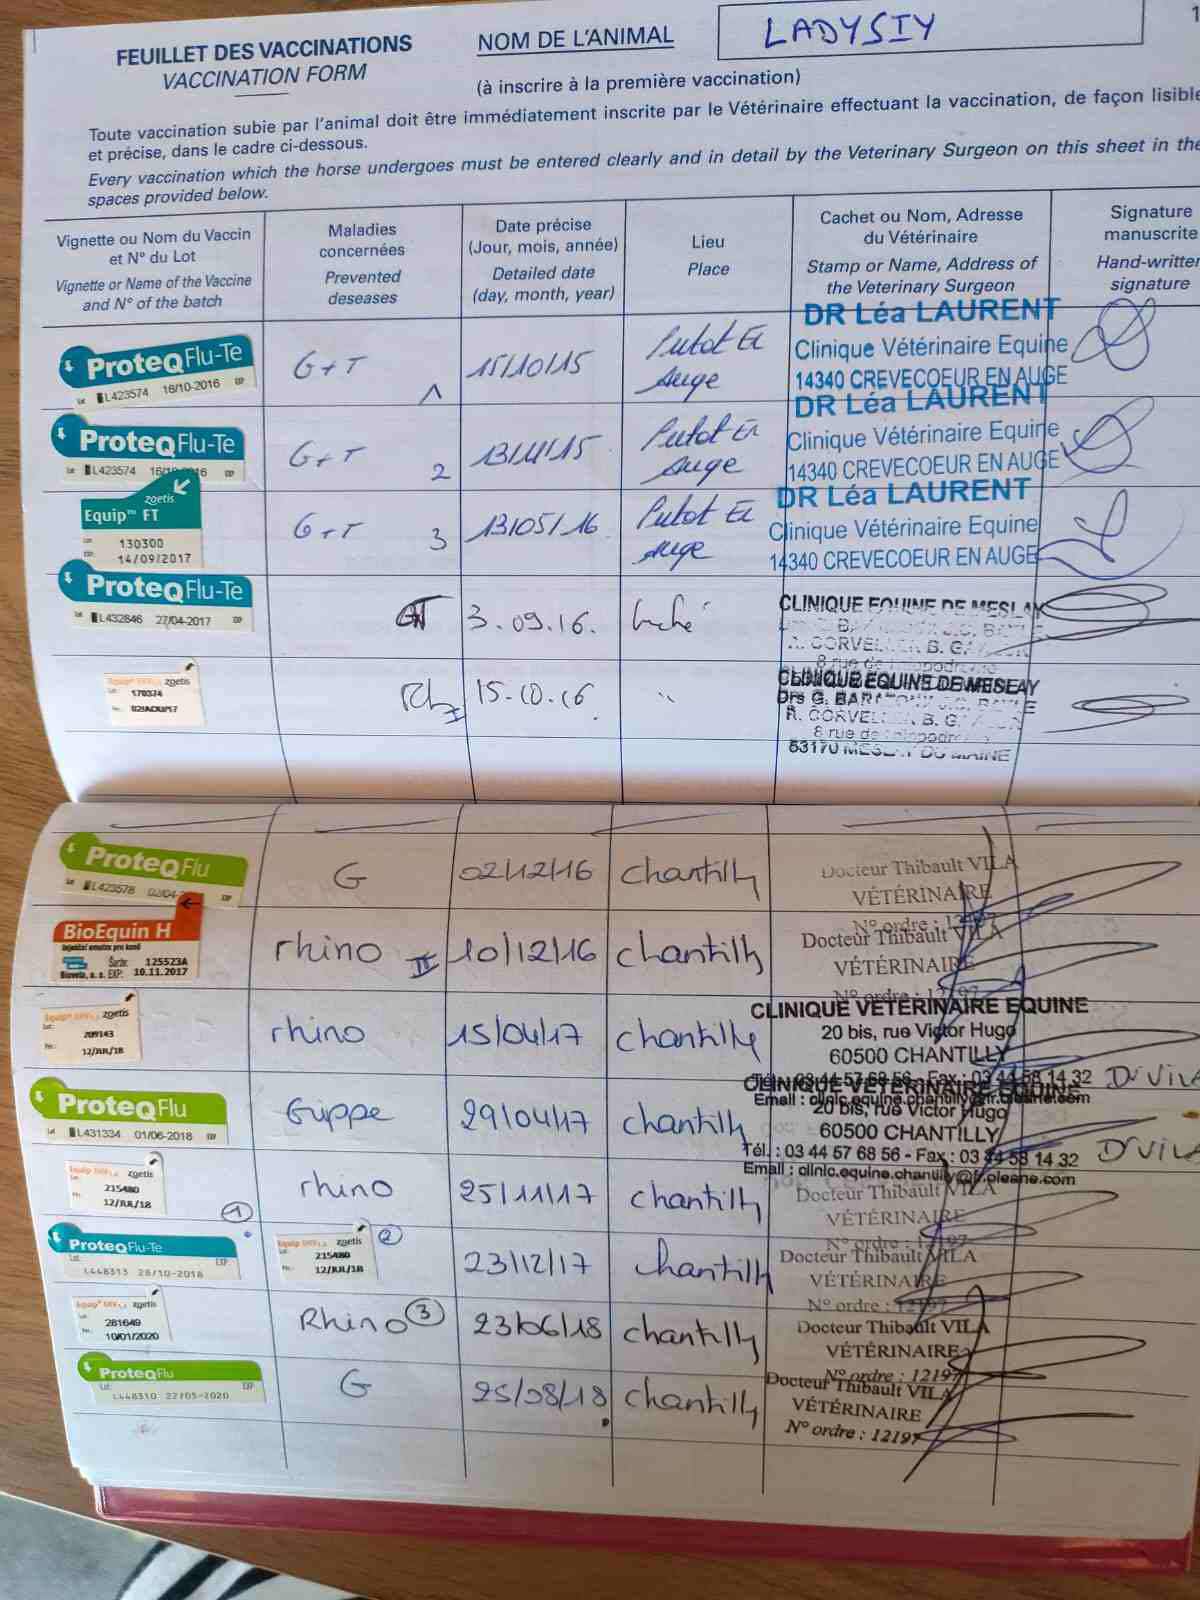 FEUILLET DES VACCINATIONS
VACCINATION FORM
NOM DE L'ANIMAL
LADYSIY
(à inscrire à la première vaccination)
Toute vaccination subie par l'animal doit être immédiatement inscrite par le Vétérinaire effectuant la vaccination, de façon lisible
et précise, dans le cadre ci-dessous.
Every vaccination which the horse undergoes must be entered clearly and in detail by the Veterinary Surgeon on this sheet in the
spaces provided below.
Vignette ou Nom du Vaccin
et N° du Lot
Vignette or Name of the Vaccine
and N° of the batch
Maladies
concernées
Prevented
deseases
Date précise
(Jour, mois, année)
Detailed date
(day, month, year)
Lieu
Place
Cachet ou Nom, Adresse
du Vétérinaire
Stamp or Name, Address of
the Veterinary Surgeon
Signature
manuscrite
Hand-written
signature
ProteqFlu-Te
Lot L423574 16/10-2016 EXP
G+T 1
15/10/15
Putot En
Auge
DR Léa LAURENT
Clinique Vétérinaire Equine
14340 CREVECOEUR EN AUGE
ProteqFlu-Te
Lot L423574 16/10-2016 EXP
G+T 2
13/11/15
Putot En
Auge
DR Léa LAURENT
Clinique Vétérinaire Equine
14340 CREVECOEUR EN AUGE
zoetis
Equip™ FT
130300
14/09/2017
G+T 3
13/05/16
Putot En
Auge
DR Léa LAURENT
Clinique Vétérinaire Equine
14340 CREVECOEUR EN AUGE
ProteqFlu-Te
Lot L432846 27/04-2017 EXP
GT
3.09.16.
CLINIQUE EQUINE DE MESLAY
R. CORVELLER B. G.
8 rue de l'hippodrome
Equip zoetis
170374
Rh I
15-10.16.
"
CLINIQUE EQUINE DE MESLAY
Drs G.
R. CORVELLER B. G.
8 rue de l'hippodrome
53170 MESLAY DU MAINE
ProteqFlu
Lot L423578 EXP
G
02/12/16
Chantilly
Docteur Thibault VILA
VÉTÉRINAIRE
N° ordre : 12197
BioEquin H
Injekční emulze pro koně
Šarže: 125523A
Bioveta, a. s. EXP. 10.11.2017
rhino II
10/12/16
chantilly
Docteur Thibault VILA
VÉTÉRINAIRE
N° ordre : 12197
Equip zoetis
209143
12/JUL/18
rhino
15/04/17
chantilly
CLINIQUE VETERINAIRE EQUINE
20 bis, rue Victor Hugo
60500 CHANTILLY
Tél. : 03 44 57 68 56 - Fax : 03 44 58 14 32
Email : clinic.equine.chantilly@fr.oleane.com
Dr VILA
ProteqFlu
Lot L431334 01/06-2018 EXP
Grippe
29/04/17
chantilly
CLINIQUE VETERINAIRE EQUINE
20 bis, rue Victor Hugo
60500 CHANTILLY
Tél. : 03 44 57 68 56 - Fax : 03 44 58 14 32
Email : clinic.equine.chantilly@fr.oleane.com
Dr VILA
Equip zoetis
215480
12/JUL/18
1
rhino
25/11/17
chantilly
Docteur Thibault VILA
VÉTÉRINAIRE
N° ordre : 12197
ProteqFlu-Te
L448313 28/10-2018 EXP
Equip zoetis
215480
12/JUL/18
2
23/12/17
chantilly
Docteur Thibault VILA
VÉTÉRINAIRE
N° ordre : 12197
Equip zoetis
281649
10/01/2020
Rhino 3
23/06/18
chantilly
Docteur Thibault VILA
VÉTÉRINAIRE
N° ordre : 12197
ProteqFlu
Lot EXP
L448310 22/05-2020
G
25/08/18
chantilly
Docteur Thibault VILA
VÉTÉRINAIRE
N° ordre : 12197